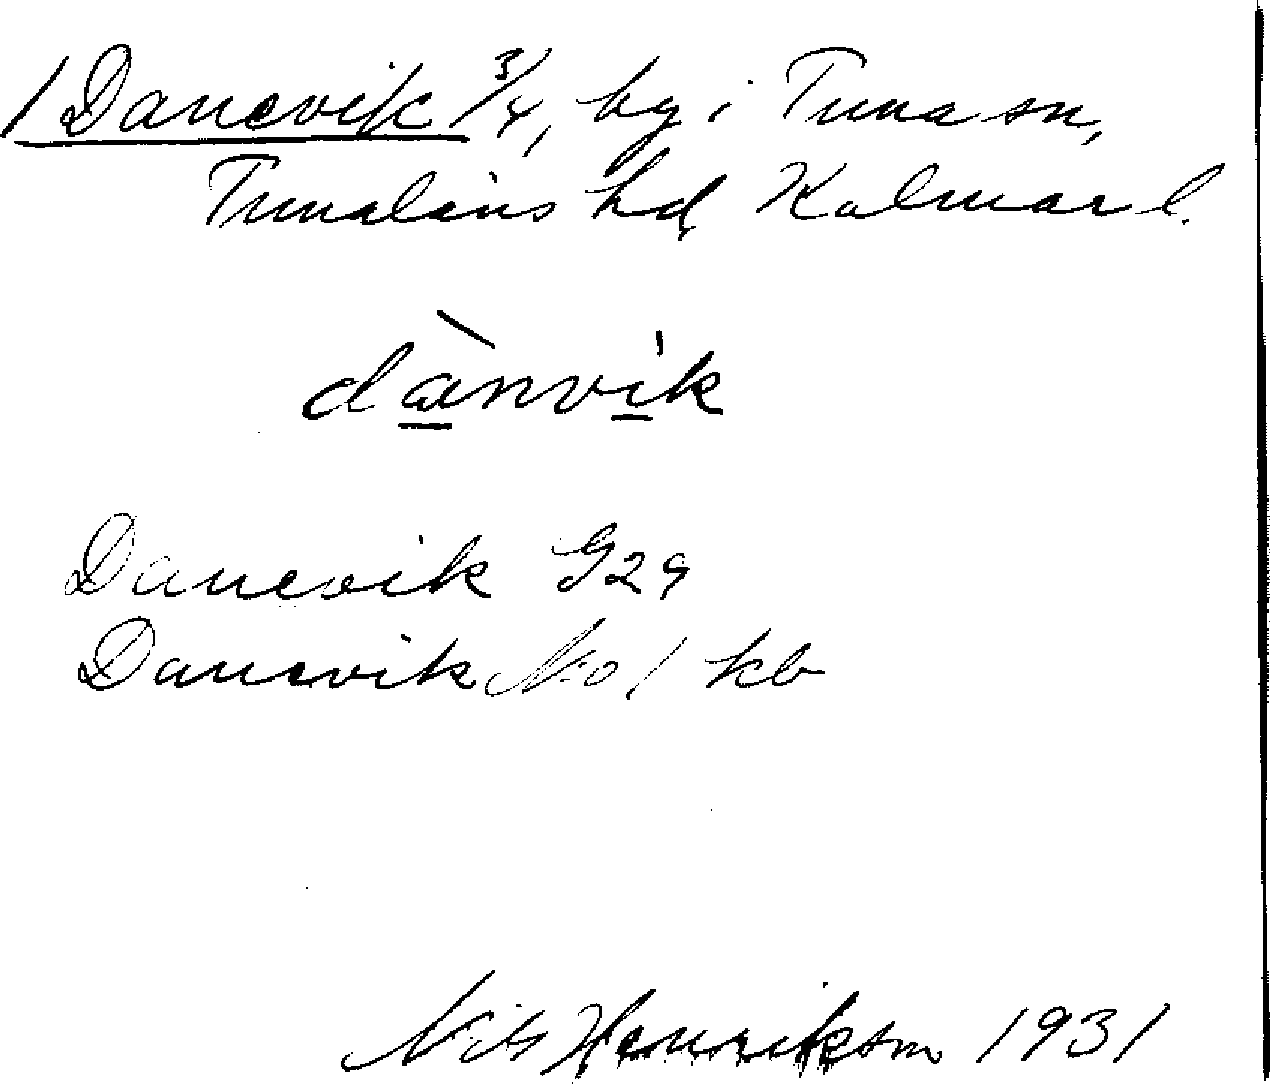 1 Danevik 3/4, by i Tuna sn,
Tunaläns hd Kalmar l.
dànvik
Danevik G29
Danevik No 1 kb
Nils Henrikson 1931